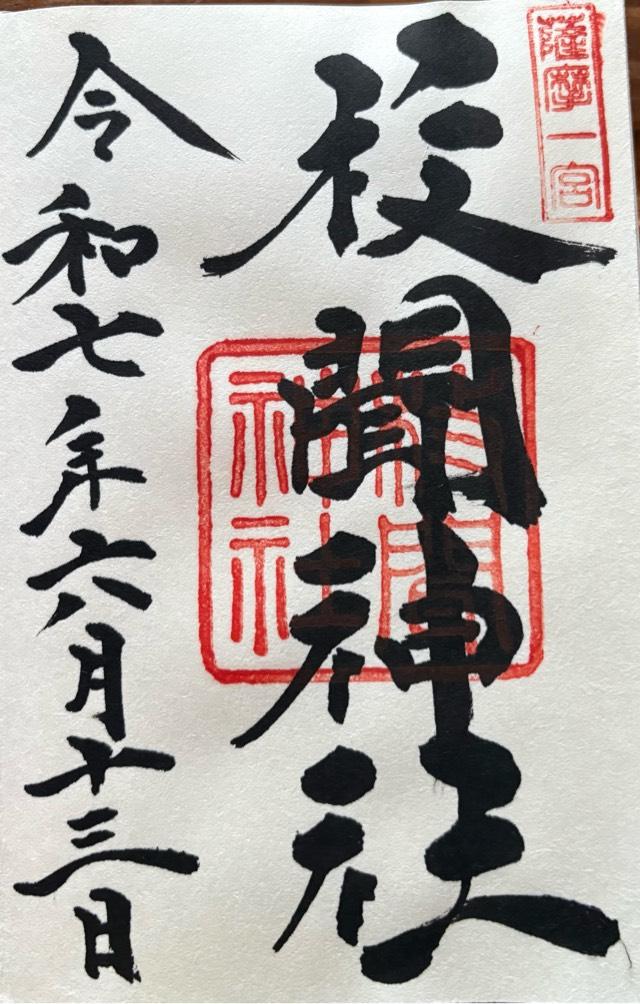 薩摩一宮
枚聞神社
枚聞
神社
令和七年六月十三日